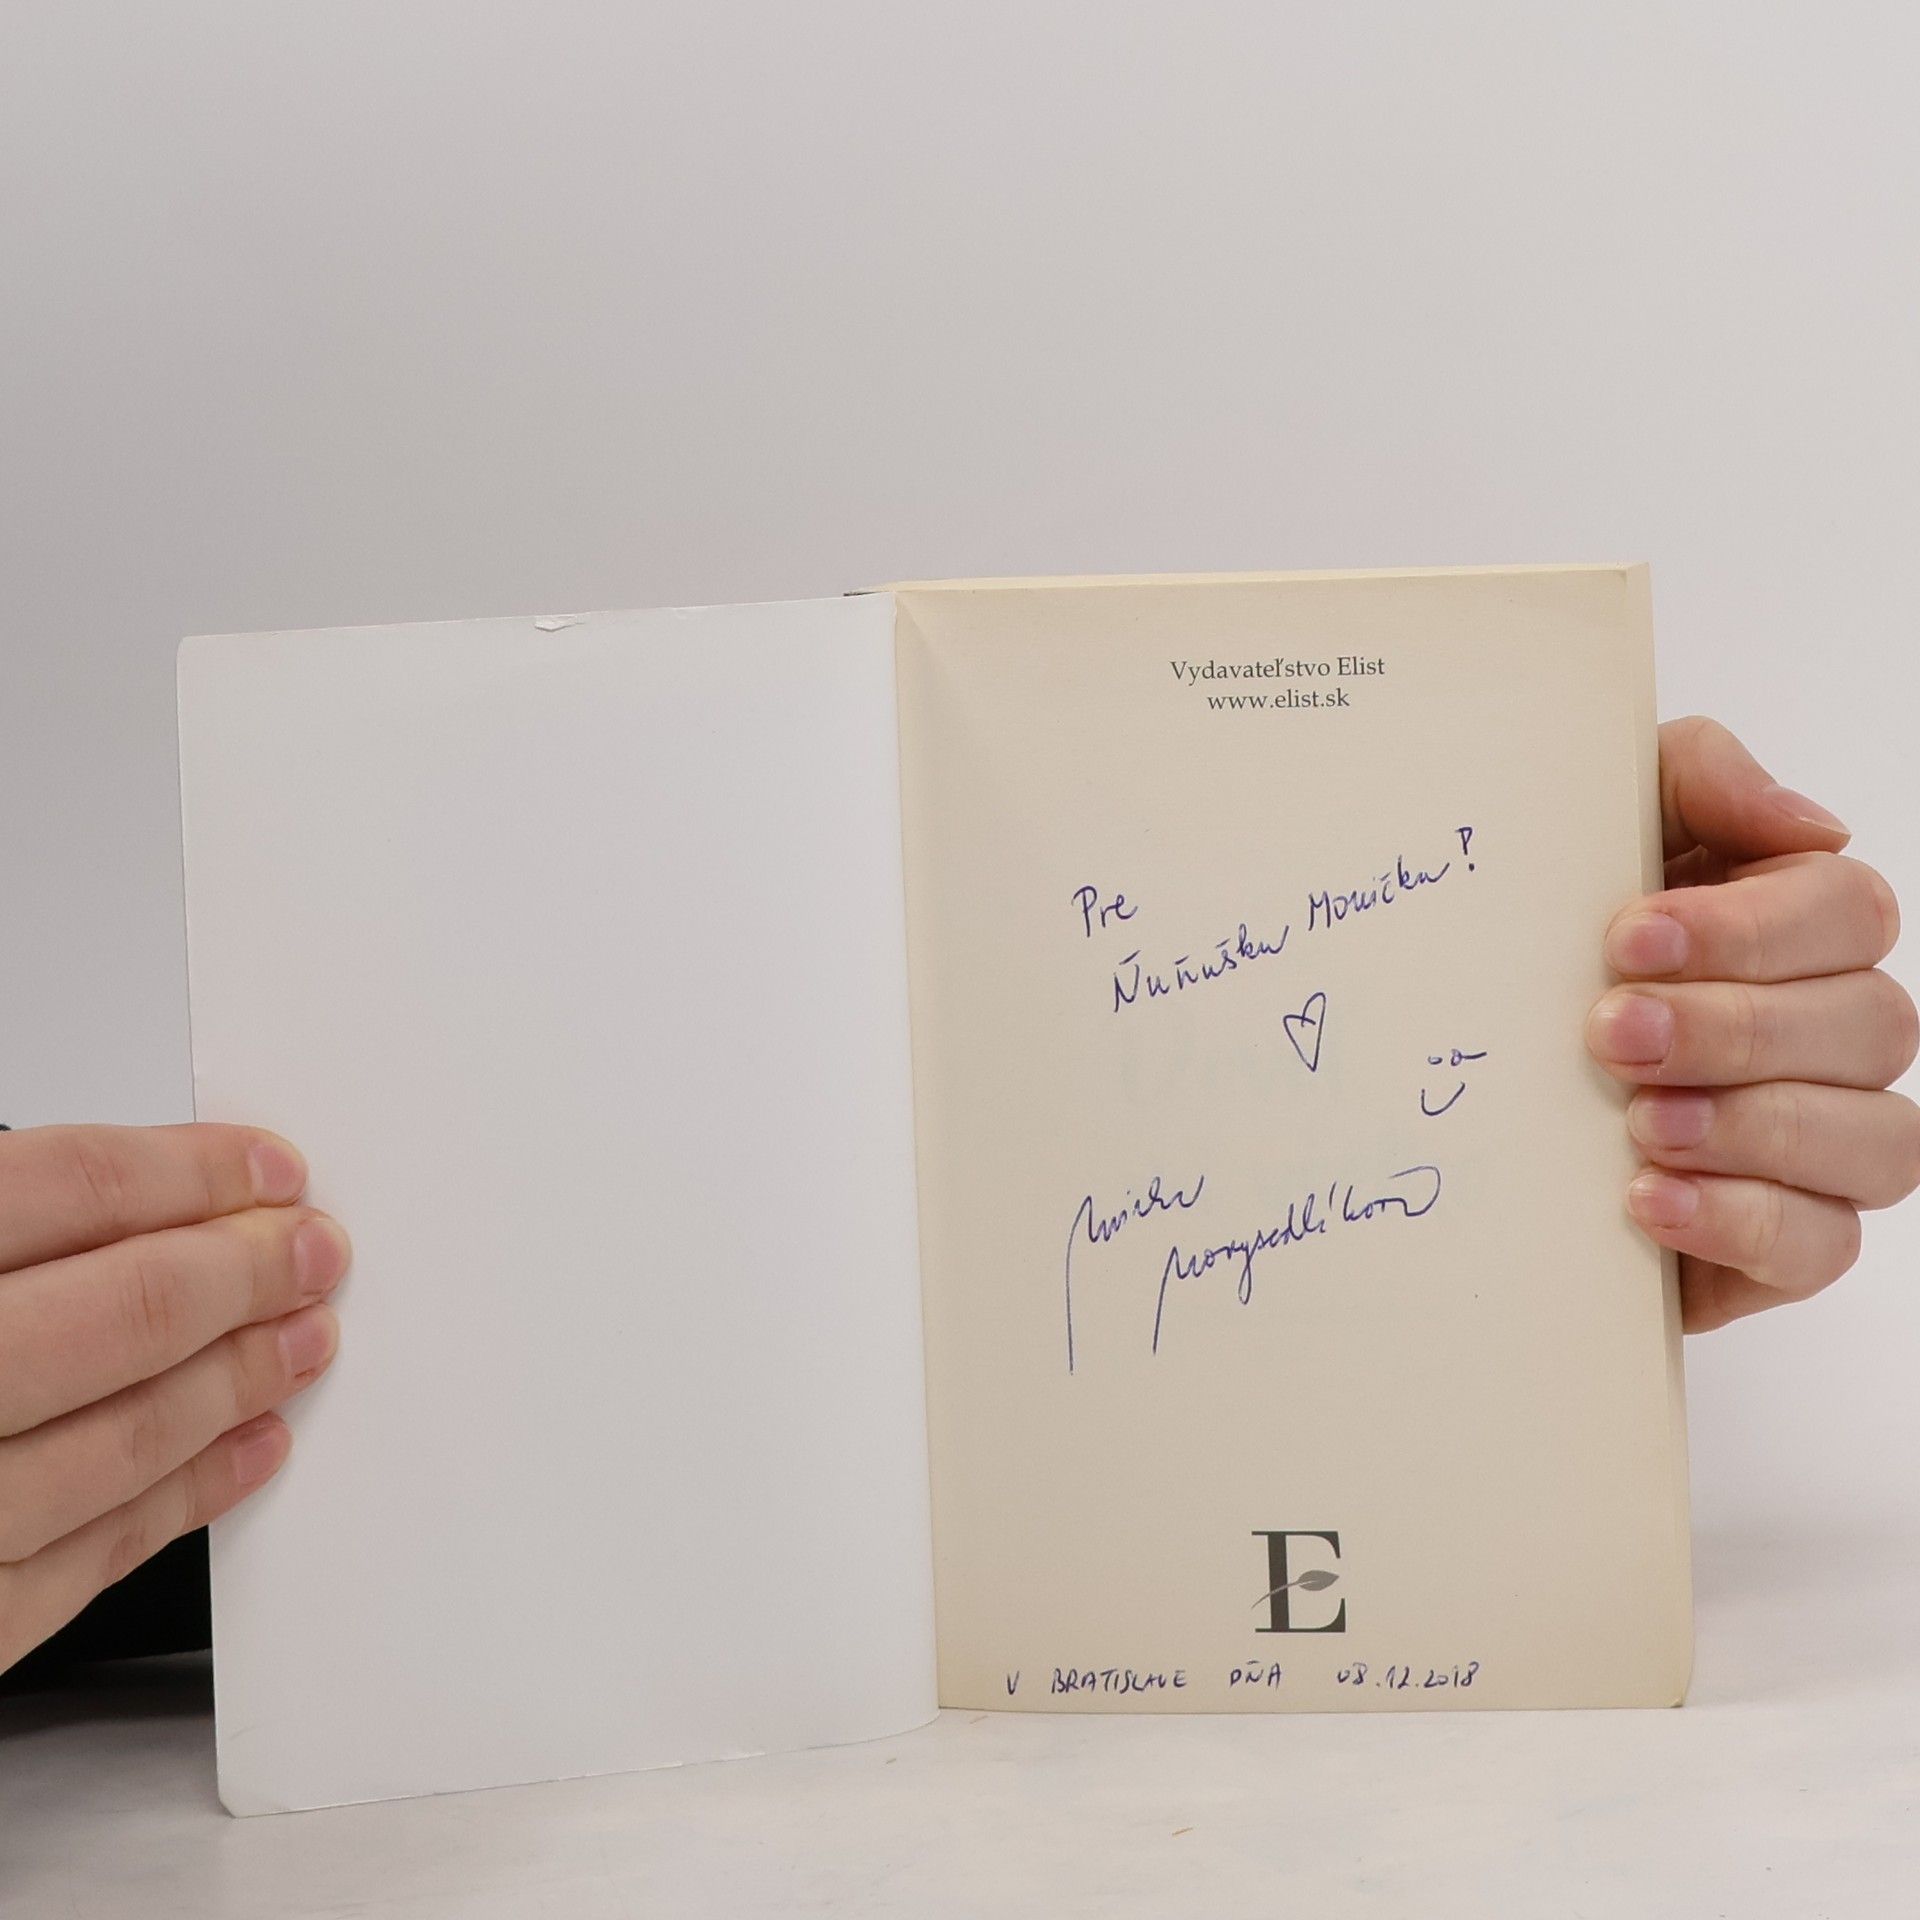 Vydavateľstvo Elist
www.elist.sk
Pre
Ňuňušku Moničku!
Miška
Novysedlíková
E
V BRATISLAVE DŇA 08.12.2018